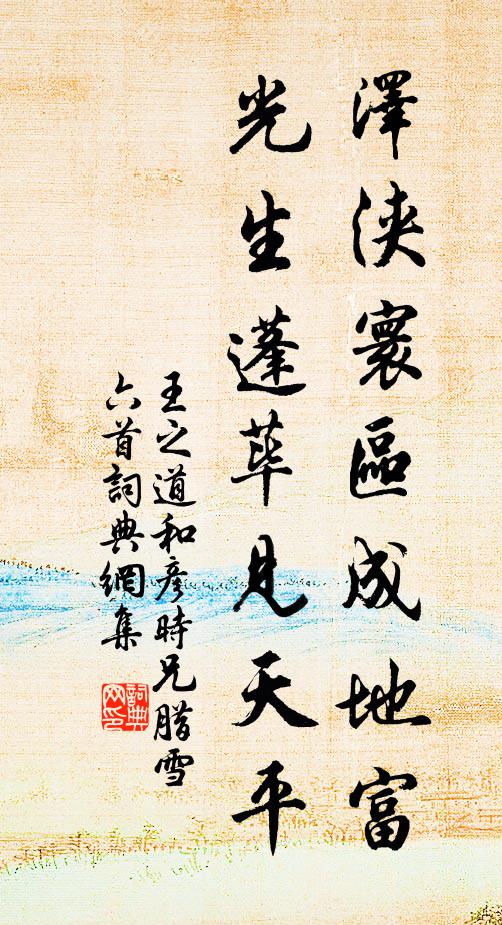 澤浹寰區成地富
光生蓬蓽見天平
王之道和彥時兄腊雪
六首詞典網集
詞典
网印